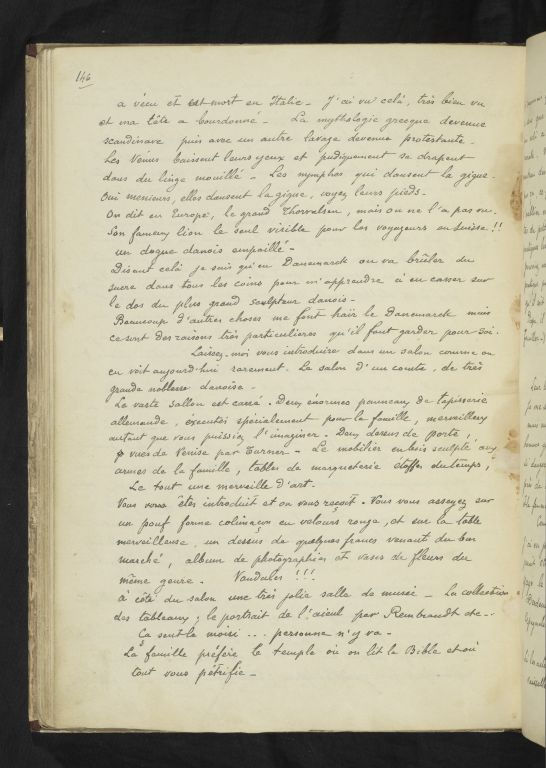 146
a vécu et est mort en Italie _ J'ai vu celà, très bien vu
et ma tête a bourdonné _ La mythologie grecque devenue
scandinave puis avec un autre lavage devenue protestante.
Les Vénus baissent leurs yeux et pudiquement se drapent
dans du linge mouillé _ Les nymphes qui dansent la gigue.
Oui messieurs, elles dansent la gigue, voyez leurs pieds _
On dit en Europe, le grand Thorvalsen, mais on ne l'a pas vu.
Son fameux lion le seul visible pour les voyageurs en Suisse !!
un dogue danois empaillé _
Disant celà je sais qu'en Danemarck on va brûler du
sucre dans tous les coins pour m'apprendre à en casser sur
le dos du plus grand sculpteur danois _
Beaucoup d'autres choses me font haïr le Danemarck mais
ce sont des raisons très particulières qu'il faut garder pour soi.
Laissez-moi vous introduire dans un salon comme on
en voit aujourd'hui rarement. Le salon d'un comte, de très
grande noblesse danoise _
Le vaste sallon est carré. Deux énormes panneaux de tapisserie
allemande, éxécutés spécialement pour la famille, merveilleux
autant que vous puissiez l'imaginer. Deux dessus de porte,
vues de Venise par Turner _ Le mobilier en bois sculpté aux
armes de la famille, tables de marqueterie étoffes du temps,
Le tout une merveille d'art.
Vous vous êtes introduit et on vous reçoit. Vous vous asseyez sur
un pouf forme colimaçon en velours rouge, et sur la table
merveilleuse, un dessus de quelques francs venant du bon
marché, album de photographies et vases de fleurs du
même genre. Vandales !!!
à côté du salon une très jolie salle de musée _ La collection
des tableaux ; le portrait de l'aïeul par Rembrandt etc _
Ça sent le moisi ... personne n'y va _
La famille préfère le temple où on lit la Bible et où
tout vous pétrifie _